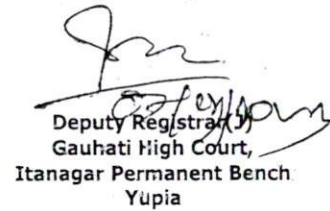 Deputy Registrar(J)
Gauhati High Court,
Itanagar Permanent Bench
Yupia